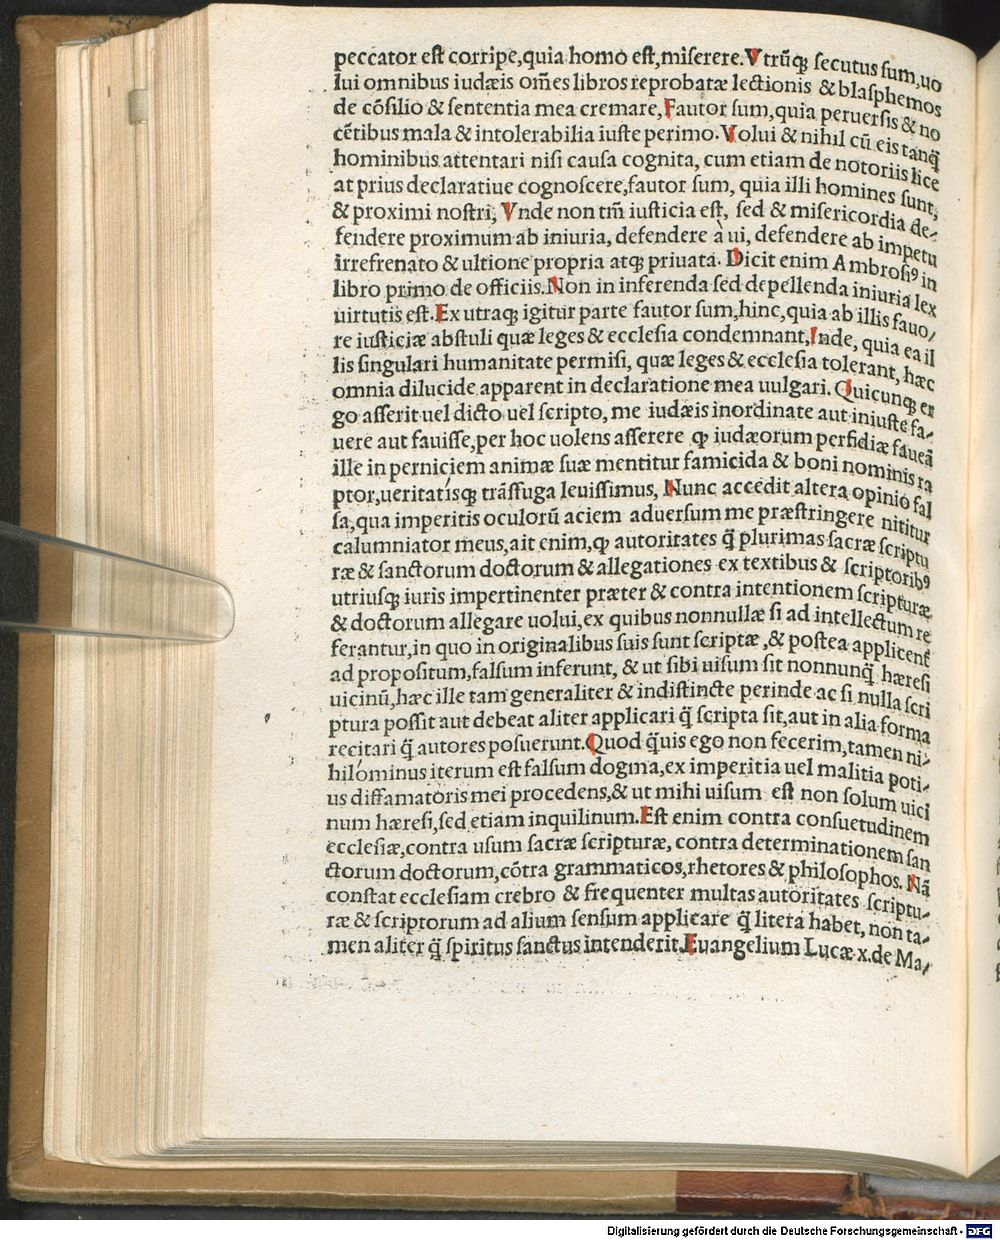 peccator est corripe,quia homo est,miserere. Vtrũq; secutus sum,uo
lui omnibus iudæis om̃es libros reprobatæ lectionis & blasphemos
de cõsilio & sententia mea cremare, Fautor sum,quia peruersis & no
cẽtibus mala & intolerabilia iuste perimo. Volui & nihil cũ eis tanq̃
hominibus attentari nisi causa cognita, cum etiam de notoriis lice
at prius declaratiue cognoscere,fautor sum, quia illi homines sunt,
& proximi nostri, Vnde non tm̃ iusticia est, sed & misericordia de-
fendere proximum ab iniuria, defendere à ui, defendere ab impetu
irrefrenato & ultione propria atq; priuata. Dicit enim Ambrosiꝰ in
libro primo de officiis. Non in inferenda sed depellenda iniuria lex
uirtutis est. Ex utraq; igitur parte fautor sum,hinc,quia ab illis fauo/
re iusticiæ abstuli quæ leges & ecclesia condemnant, Inde, quia ea il
lis singulari humanitate permisi, quæ leges & ecclesia tolerant, hæc
omnia dilucide apparent in declaratione mea uulgari. Quicunq; er
go asserit uel dicto uel scripto, me iudæis inordinate aut iniuste fa-
uere aut fauisse,per hoc uolens asserere ꝙ iudæorum perfidiæ faueã
ille in perniciem animæ suæ mentitur famicida & boni nominis ra
ptor,ueritatísq; trãssuga leuissimus, Nunc accedit altera opinio fal
sa,qua imperitis oculorũ aciem aduersum me præstringere nititur
calumniator meus,ait enim,ꝙ autoritates q̃ plurimas sacræ scriptu
ræ & sanctorum doctorum & allegationes ex textibus & scriptoribꝰ
utriusq; iuris impertinenter præter & contra intentionem scripturæ
& doctorum allegare uolui,ex quibus nonnullæ si ad intellectum re
ferantur,in quo in originalibus suis sunt scriptæ ,& postea applicent̃
ad propositum,falsum inferunt, & ut sibi uisum sit nonnunq̃ hæresi
uicinũ,hæc ille tam generaliter & indistincte perinde ac si nulla scri
ptura possit aut debeat aliter applicari q̃ scripta sit,aut in alia forma
recitari q̃ autores posuerunt. Quod q̃uis ego non fecerim,tamen ni-
hilóminus iterum est falsum dogma,ex imperitia uel malitia poti-
us diffamatoris mei procedens,& ut mihi uisum est non solum uici
num hæresi,sed etiam inquilinum. Est enim contra consuetudinem
ecclesiæ,contra usum sacræ scripturæ, contra determinationem san
ctorum doctorum,cõtra grammaticos,rhetores & philosophos. Nã
constat ecclesiam crebro & frequenter multas autoritates scriptu-
ræ & scriptorum ad alium sensum applicare q̃ litera habet, non ta-
men aliter q̃ spiritus sanctus intenderit. Euangelium Lucæ x.de Ma/
Digitalisierung gefördert durch die Deutsche Forschungsgemeinschaft - DFG